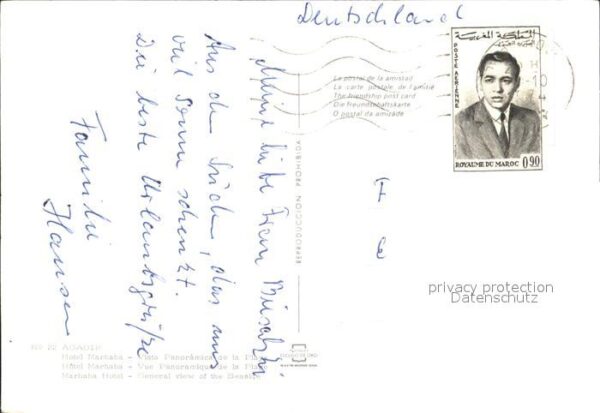 Deutschland
المملكة المغربية
POSTE AERIENNE
ROYAUME DU MAROC
0.90
La postal de la amistad
La carte postale de l'amitié
The friendship post card
Die Freundschaftskarte
O postal da amizade
REPRODUCCION PROHIBIDA
Meine liebe Frau
Aus dem Süden, das uns
viel Sonne schenkt.
Die beste Urlaubsgrüße
Familie
Hansen
privacy protection
Datenschutz
No 22 AGADIR
Hotel Marhaba - Vista Panorámica de la
Hôtel Marhaba - Vue Panoramique de la
Marhaba Hotel - General view of the